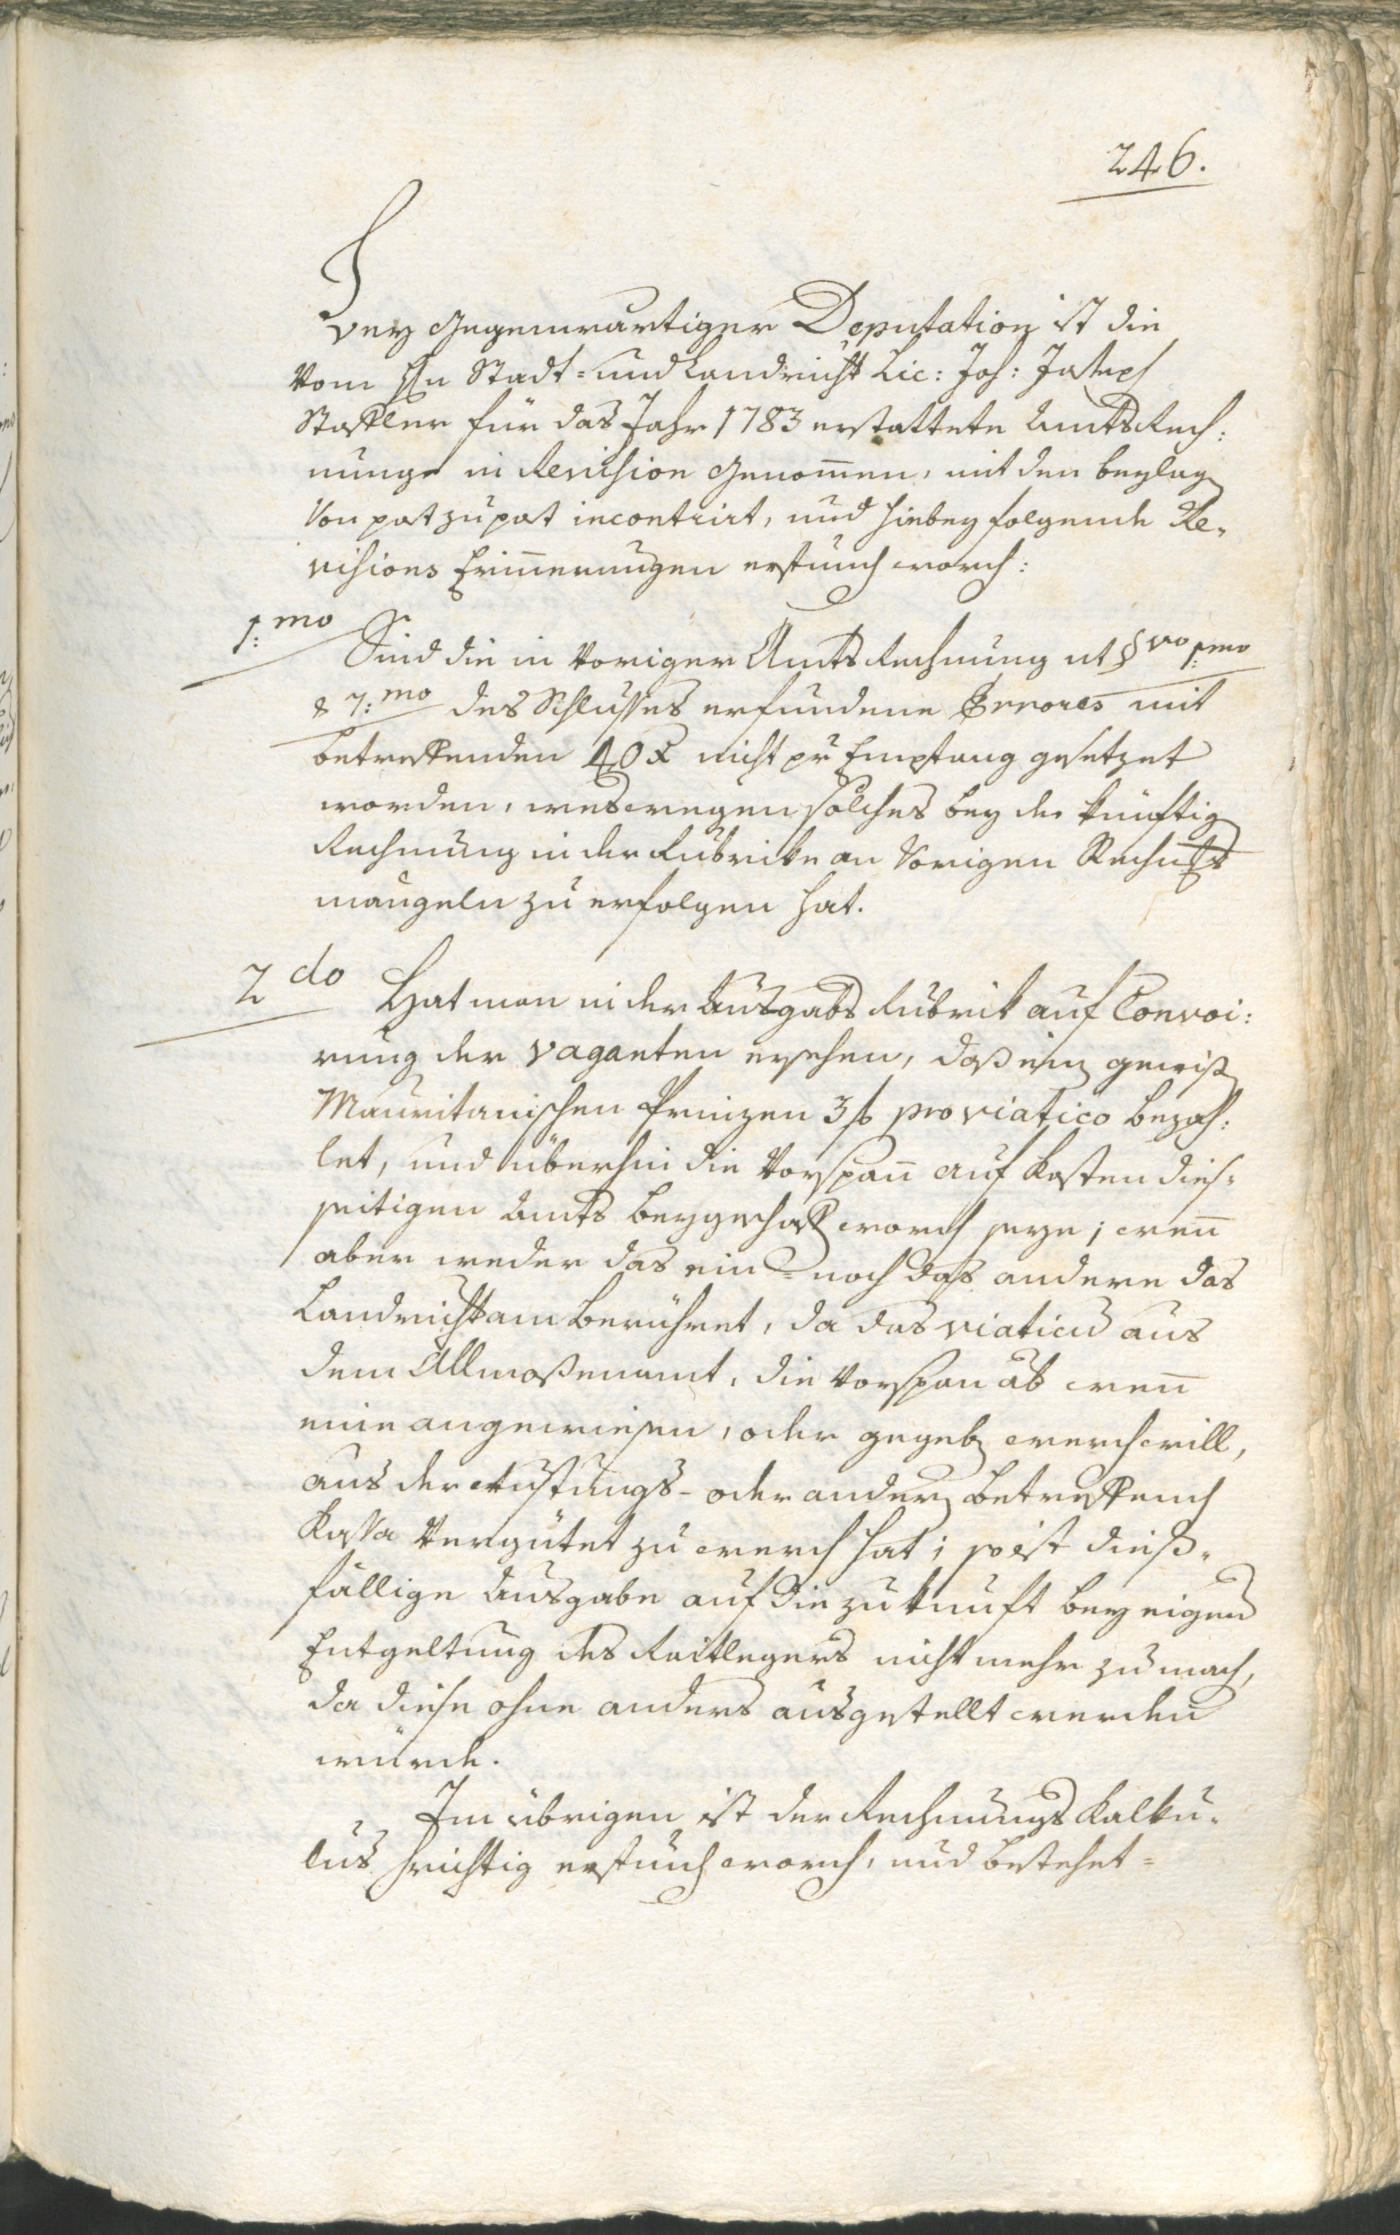 246.
Bey gegenwärtiger Deputation ist die
vom Hn Stadt- und Landricht Lic: Joh: Joseph
Staffler für das Jahr 1783 erstattete Amts Rech:
nung in Revision genommen, mit den beylag
von post zu post incontrirt, und hiebey folgende Re-
visions Erinnerungen erstund word:
1:mo Sind die in voriger Amts Rechnung ut §vo 1:mo
& 7:mo des Schlusses erfundene Errores mit
betreffenden 40 x nicht pr Empfang gesetzet
worden, weswegen solches bey der künftig
Rechnung in der Rubrike an vorigen Rechngs
mängeln zu erfolgen hat.
2do Hat man in der Ausgabs Rubrik auf Convoi:
rung der vaganten ersehen, daß ein gewiß
Mauritanischen Prinzen 3 f pro viatico bezah:
let, und überhin die Vorspan auf Kosten dies-
seitigen Amts beygeschaft word seye; wen
aber weder das ein- noch das andere das
Landrichtamt berühret, da das viaticu aus
dem Allmoßenamt, die Vorspan ab wen
eine angewiesen, oder gegeb werd will,
aus der Rustungs- oder ander betreffend
Kassa vergütet zu werd hat; so ist dieß-
fällige Ausgabe auf die zukunft bey eigen
Entgeltung des Raitlegers nicht mehr zu mach,
da diese ohne anders ausgestellt werden
würde.
Im übrigen ist der Rechnungs Kalku-
lus richtig erstund word, und bestehet=